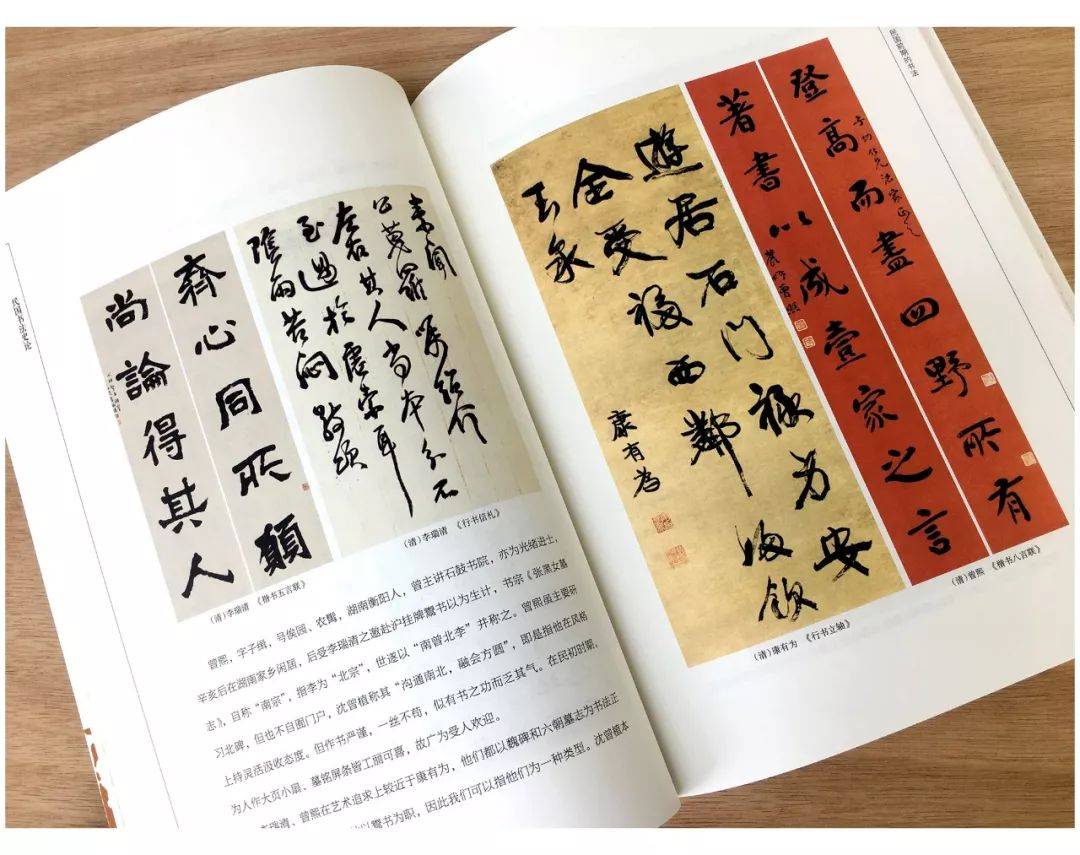 民国书法史论
齊心同所願
尚論得其人
(清)李瑞清 《楷书五言联》
其人尚本分不
於唐宋耳
陰雨苦闷
(清)李瑞清 《行书信札》
曾熙,字子缉,号俟园、农髯,湖南衡阳人,曾主讲石鼓书院,亦为光绪进士,
辛亥后在湖南家乡闲居,后受李瑞清之邀赴沪挂牌鬻书以为生计,书宗《张黑女墓
志》,自称“南宗”,指李为“北宗”,世遂以“南曾北李”并称之。曾熙虽主要研
习北碑,但也不自囿门户,沈曾植称其“沟通南北,融会方圆”,即是指他在风格
上持灵活汲收态度。但作书严谨,一丝不苟,似有书之功而乏其气。在民初时期,
为人作大页小扇、墓铭屏条皆工丽可喜,故广为受人欢迎。
李瑞清、曾熙在艺术追求上较近于康有为,他们都以魏碑和六朝墓志为书法正
以鬻书为职,因此我们可以指他们为一种类型。沈曾植本
民国前期的书法
登高而盡四野所有
法家正之
著書以成壹家之言
農髯曾熙
(清)曾熙 《楷书八言联》
遊居石门祿身安
全受福西鄰歡飲
玉泉
康有为
(清)康有为 《行书立轴》